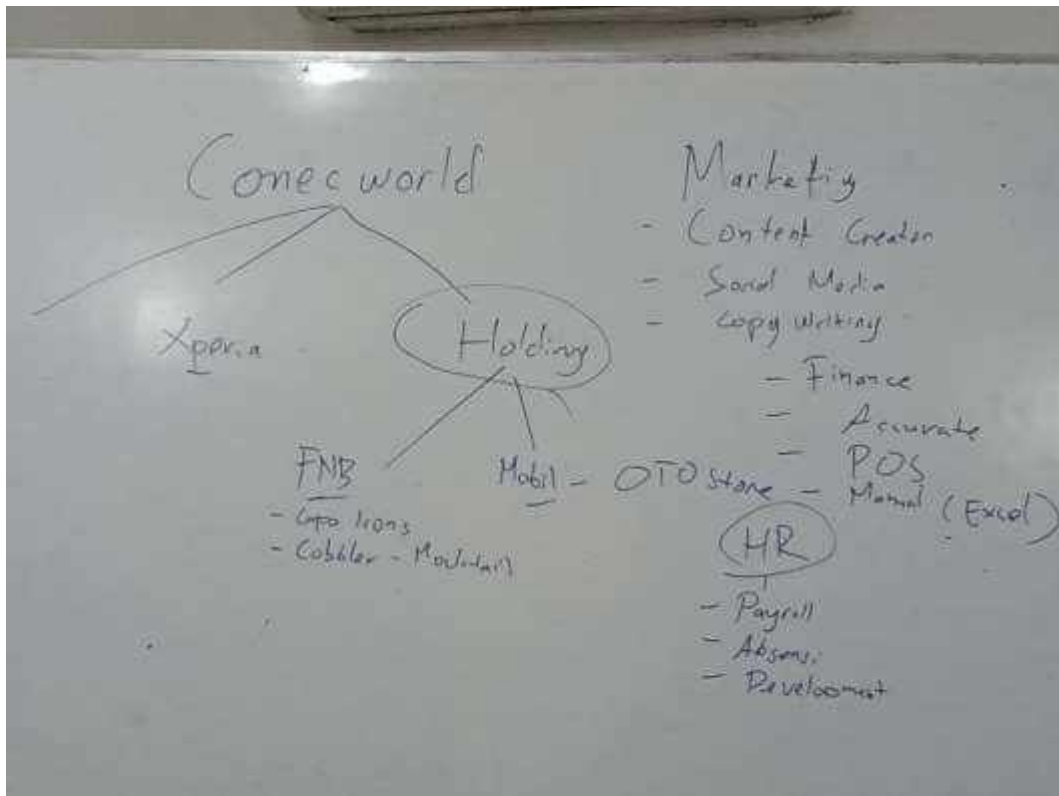 Conecworld
Xperia
Holding
FNB
- Cobbler -
Mobil - OTO Store
Marketig
- Content Creator
- Social Media
- Copy Writing
- Finance
- Accurate
- POS
- Manual (Excel)
HR
- Payroll
- Absensi
- Development